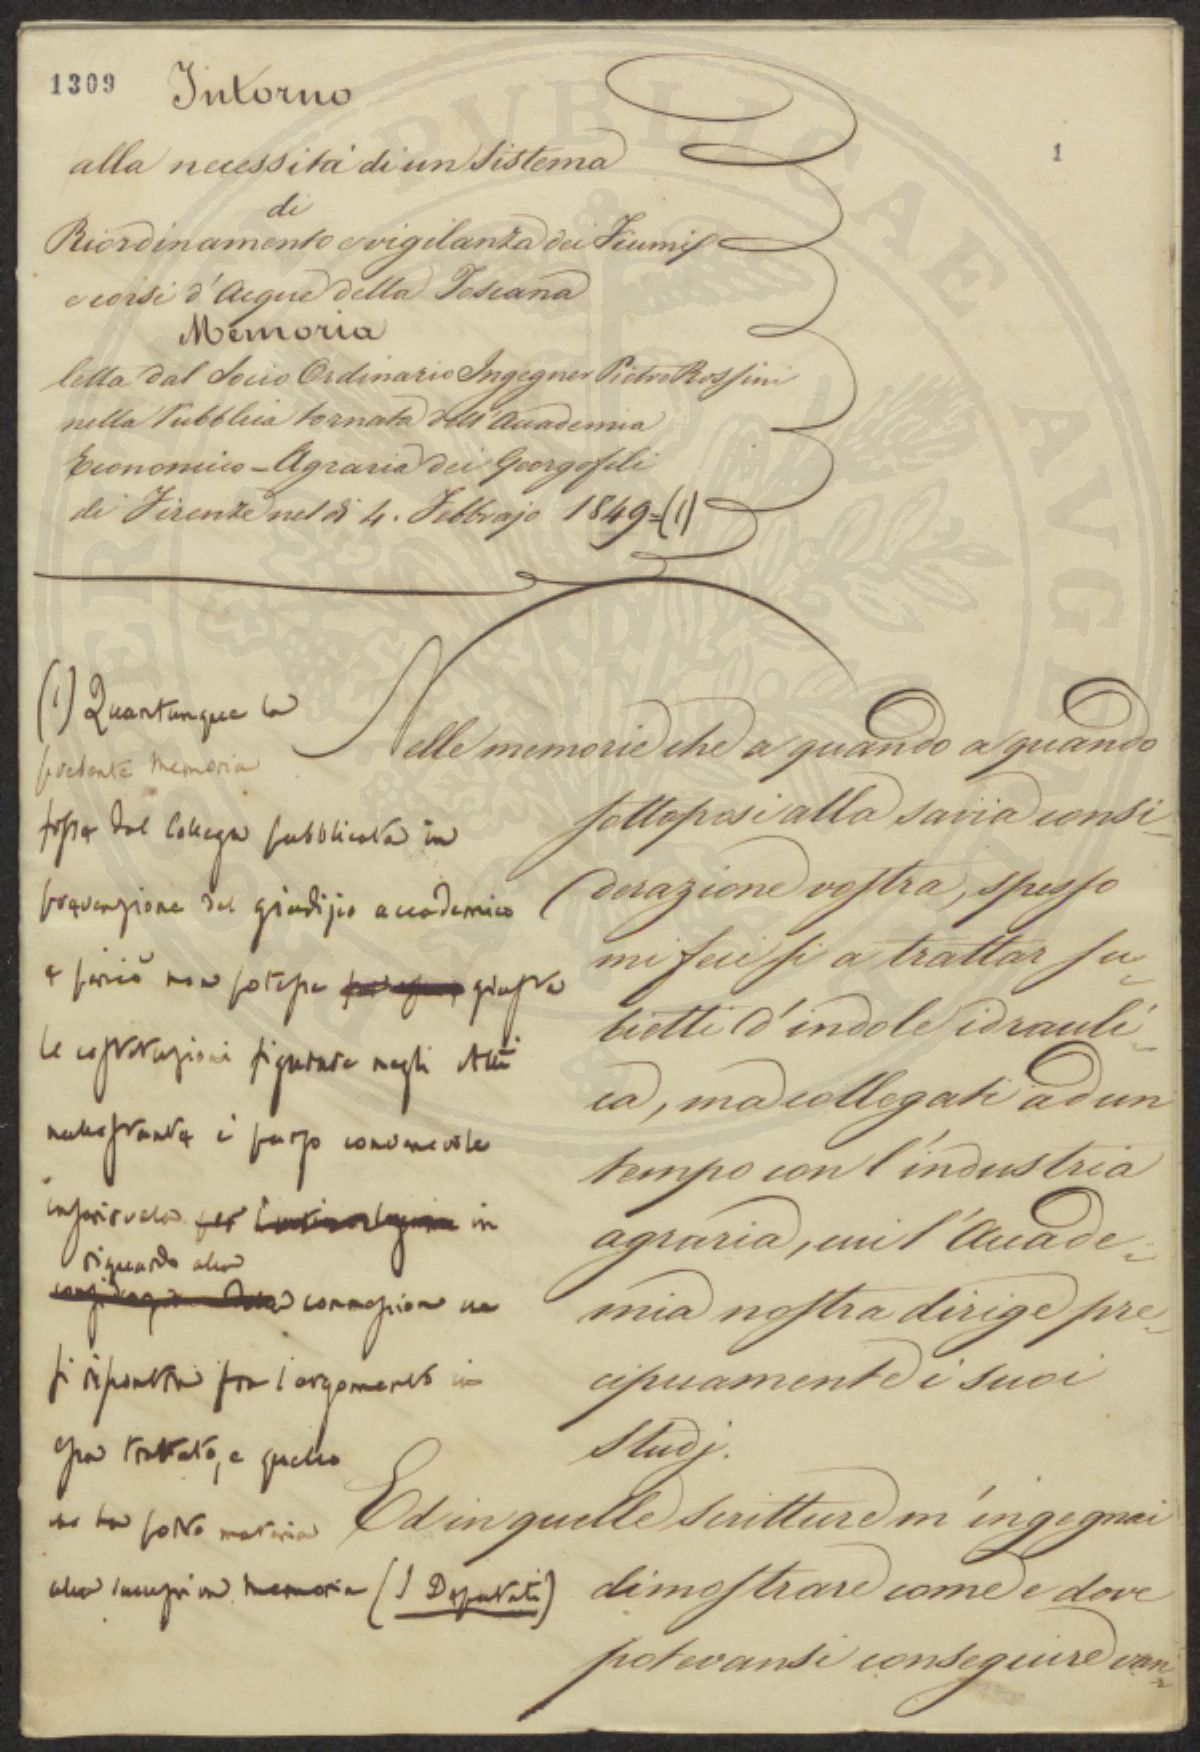 1309
1
Intorno
alla necessità di un Sistema
di
Riordinamento e vigilanza dei Fiumi
e corsi d'Acque della Toscana
Memoria
letta dal Socio Ordinario Ingegner Pietro Rossini
nella Pubblica tornata dell'Accademia
Economico-Agraria dei Georgofili
di Firenze nel dì 4. Febbrajo 1849=(1)
Nelle memorie che a quando a quando
sottoposi alla savia consi-
derazione vostra, spesso
mi feci si a trattar su-
bietti d'indole idrauli-
ca, ma collegati ad un
tempo con l'industria
agraria, cui l'Accade-
mia nostra dirige pre-
cipuamente i suoi
Studj.
Ed in quelle scritture m'ingegnai
dimostrare come e dove
potevansi conseguire van-
(1) Quantunque la
presente Memoria
fosse dal Collega pubblicata in
prevenzione del giudizio accademico
e perciò non potesse giusta
le costituzioni figurare negli Atti
nullostante è parso convenevole
inserirvela per in
riguardo alla
connessione che
si riscontra fra l'argomento in
essa trattato, e quello
che ha porto materia
alla successiva Memoria (I Deputati)